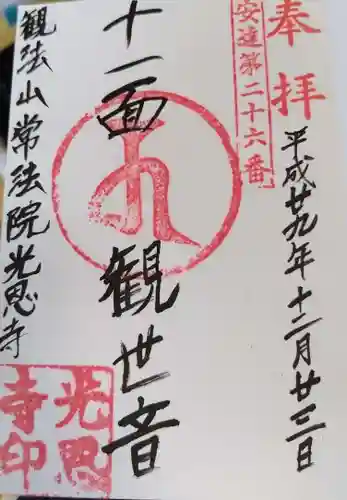 奉拝
安達第二十六番
平成廿九年十二月廿三日
十一面観世音
観法山常法院光恩寺
光恩
寺印